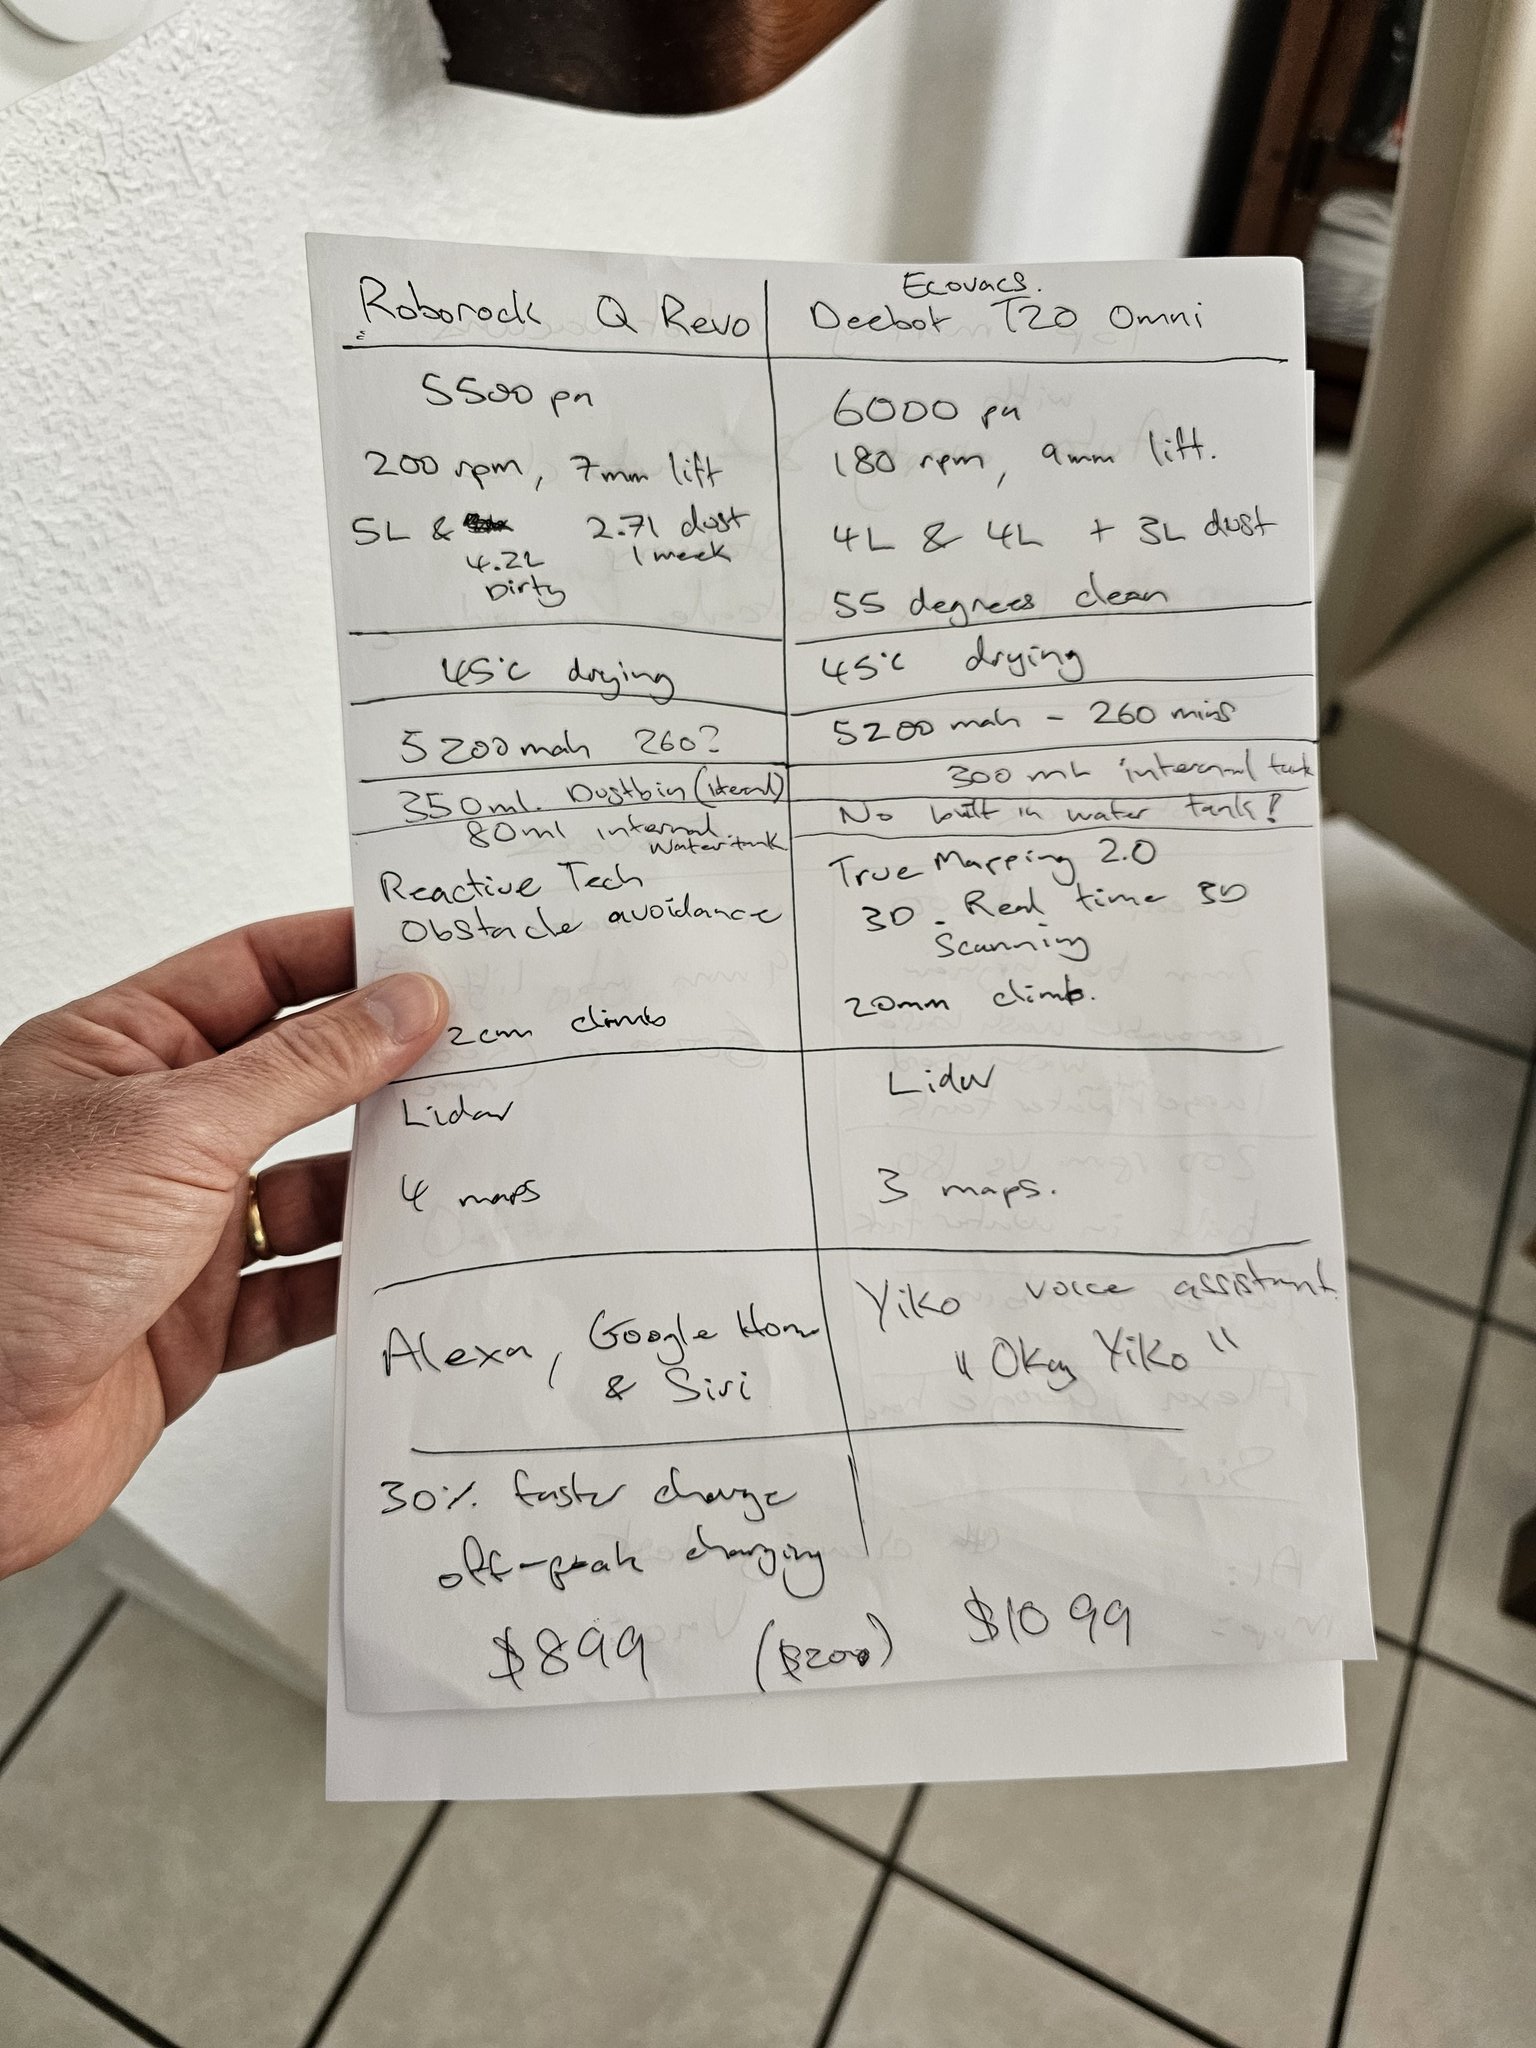 Roborock Q Revo
Ecovacs.
Deebot T20 Omni
5500 pa
6000 pa
200 rpm, 7mm lift
180 rpm, 9mm lift.
5L & 2.7l dust
4.2L 1 week
Dirty
4L & 4L + 3L dust
55 degrees clean
45°c drying
45°c drying
5200 mah 260?
5200 mah - 260 mins
350ml. Dustbin (iternal)
300 ml internal tank
80ml internal
water tank
No built in water tank!
Reactive Tech
Obstacle avoidance
True Mapping 2.0
3D - Real time 3D
Scanning
2cm climb
20mm climb.
Lidar
Lidar
4 maps
3 maps.
Alexa, Google Home
& Siri
Yiko voice assistant
"Okay Yiko"
30% faster charge
off-peak charging
$899 ($200) $1099